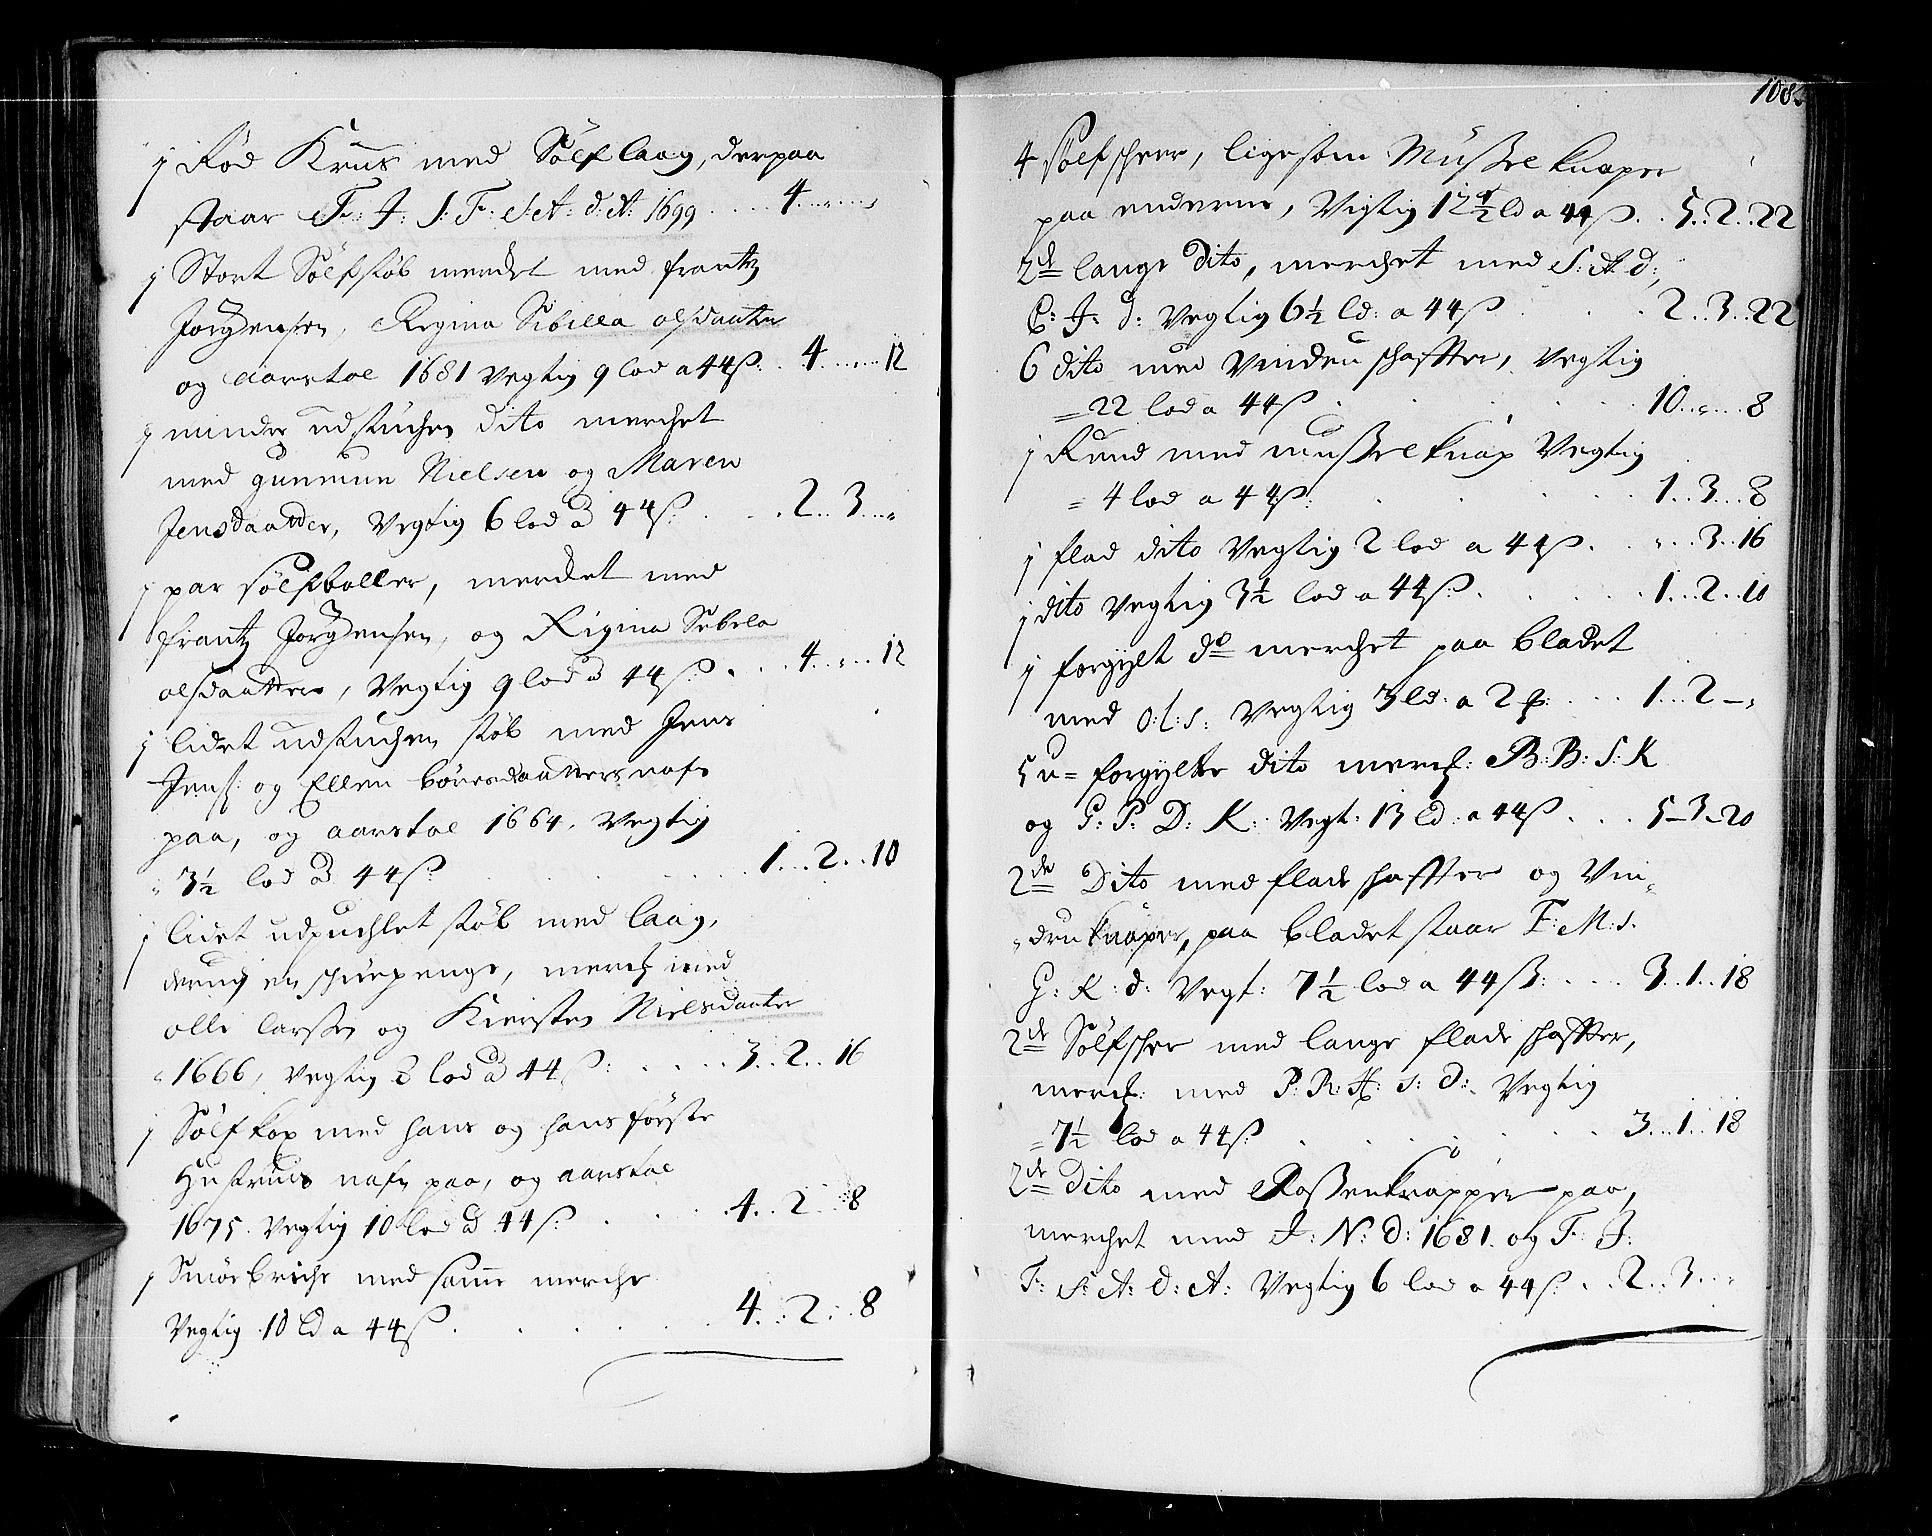 1 Rød Kruus med Sølf laag, derpaa
staar F: J: S: F: S: A: d: A: 1699 .... 4..„..„
1 Stort Sølfstøb merchet med frantz
Jørgensen, Regina Sibilla olsdaatter
og aarstal 1681 Vegtig 9 lod a 44ß. . 4......12
1 minder udstuchen dito merchet
med gunmun Nielsen og Maren
Jensdaatter, Vegtig 6 lod à 44ß: . . . 2..3..„
1 par sølfboller, merchet med
frantz Jørgensen, og Rigina Sebela
olsdaatter, Vegtig 9 lod à 44ß: . . . 4..„..12
1 lidet udstuchen støb med Jens
Jens: og Ellen børesdaatters nafn
paa, og aarstal 1664. Vegtig
„ 3½ lod à 44ß: . . . 1...2..10
1 lidet udpuchlet støb med laag,
derudj en schuepenge, merch: med
olle larssen og Kiersten Nielsdaatter
„1666, Vegtig 8 lod à 44ß: . . . . 3..2..16
1 Sølfkop med hans og hans første
Hustrues nafn paa, og aarstal
1675. Vegtig 10 lod à 44ß: . . . 4..2..8
1 Smørbriche med samme merche
Vegtig 10 ld a 44ß . . . . 4..2..8
108
4 sølfscher, ligesom Mussel knaper
paa enderne, Vigtig 12½ ld a 44ß . . 5..2..22
2de lange Dito, merchet med S: A: d:,
E: J: d: Vegtig 6½ ld: a 44ß . . . 2..3..22
6 dito med Vinden schaffter, Vegtig
=22 lod a 44ß . . . . 10..„..8
1 Rund med musselknap Vegtig
= 4 lod a 44ß: . . . . 1..3..8
1 flad dito Vegtig 2 lod a 44ß. . „..3..16
1 dito Vegtig 3½ lod a 44ß: . . . 1..2..10
1 forgylt do merchet paa bladet
med O: L: S: Vegtig 3 ld: a 2 ... 1..2-„
5 u= forgylte dito merch: B: B: S: K
og G: P: D: K: Vegt. 13 ld: a 44ß . . . 5-3-20
2de Dito med flade schaffter og Vin„
„dru knaper, paa bladet staar F: M: S.
G: K: d: Vegt: 7½ lod a 44ß: . . . . 3..1..18
2de Sølfscher med lange flade schaffter,
merch: med P: R: H: S: D: Vegtig
=7½ lod a 44ß: . . . . 3...1..18
2de Dito med Rossenknapper paa,
merchet med J: N: D: 1681. og F: J:
F: S: A: D: A: Vegtig 6 lod a 44ß . . 2..3..„